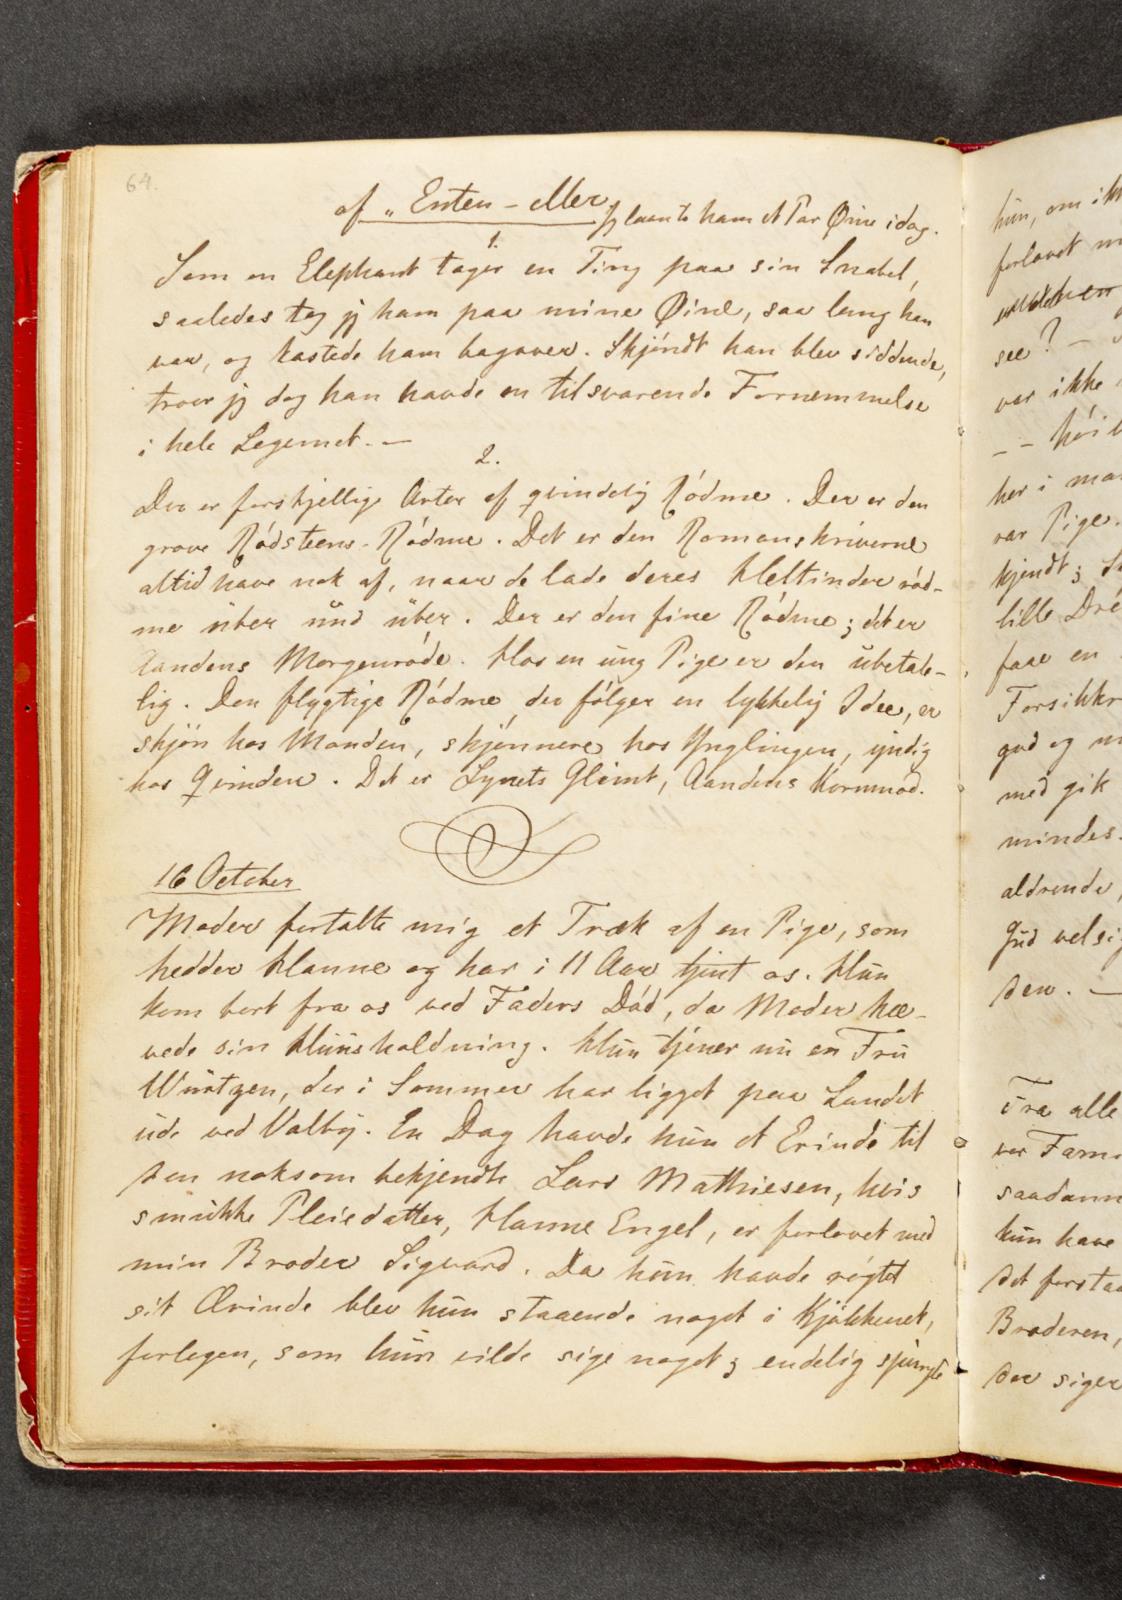 64.
af „Enten – eller. Jeg laante ham et Par Øine idag.
1.
Som en Elephant tager en Ting paa sin Snabel,
saaledes tog jeg ham paa mine Øine, saa lang han
var, og kastede ham bagover. Skjöndt han blev siddende,
troer jeg dog han havde en tilsvarende Fornemmelse
i hele Legemet. —
2.
Der er forskjellige Arter af qvindelig Rödme. Der er den
grove Rödsteens-Rödme. Det er den Romanskriverne
altid have nok af, naar de lade deres Heltinder röd-
me über und über. Der er den fine Rödme; det er
Aandens Morgenröde. Hos en ung Pige er den ubetale-
lig. Den flygtige Rödme, der fölger en lykkelig Idee, er
skjön hos Manden, skjönnere hos Ynglingen, yndig
hos Qvinden. Det er Lynets Glimt, Aandens Kornmod.
16 October
Moder fortalte mig et Træk af en Pige, som
hedder Hanne og har i 11 Aar tjent os. Hun
kom bort fra os ved Faders Död, da Moder hæ-
vede sin Huusholdning. Hun tjener nu en Fru
Würtzen, der i Sommer har ligget paa Landet
ude ved Valby. En Dag havde hun et Erinde til
den noksom bekjendte Lars Mathiesen, hvis
smukke Pleiedatter, Hanne Engel, er forlovet med
min Broder Sigvard. Da hun havde rögtet
sit Ærinde blev hun staaende noget i Kjökkenet,
forlegen, som hun vilde sige noget; endelig spurgte
hun, om ik
forlovet m
see? –
var ikke
– – höi
her i ma
rar Pige.
kjendt; S
lille Dre
faae en
Forsikkr
god og m
med gik
mindes
aldrende,
Gud velsi
den. —
Fra alle
var
saadann
kun have
det forstaa
Broderen,
der siger